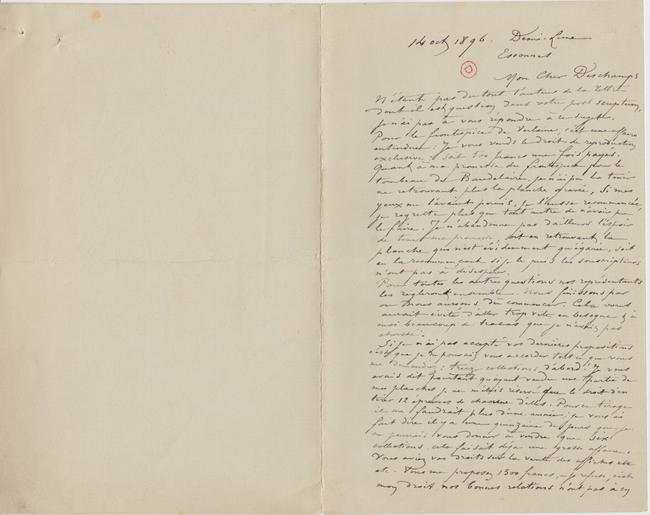 14 oct 1896. Demi-Lune
Essonnes
Mon Cher Deschamps
N'étant pas du tout l'auteur de la lettre
dont il est question dans votre post scriptum,
je n'ai pas à vous répondre à ce sujet.
Pour le frontispice de Verlaine, c'est une affaire
entendue: je vous vends le droit de reproduction
exclusive; soit 500 francs une fois payés.
Quant à ma promesse du frontispice pour le
tombeau de Baudelaire, je n'ai pu la tenir
ne retrouvant plus la planche gravée, Si mes
yeux me l'avaient permis, je l'eusse recommencée
je regrette plus que tout autre de n'avoir pu
le faire. Je n'abandonne pas d'ailleurs l'espoir
de tenir ma promesse, soit en retrouvant la
planche qui n'est évidemment qu'égarée, soit
en la recommençant si je le puis les souscripteurs
n'ont pas à désespérer.
Pour toutes les autres questions nos représentants
les règleront ensemble. Nous finissons par
où nous aurions dû commencer. Cela vous
aurait évité d'aller trop vite en besogne & à
moi beaucoup de tracas que je n'avais pas
Si je n'ai pas accepté vos dernières propositions
c'est que je ne pouvais vous accorder tout ce que vous
me demandiez: treize collections, d'abord! Je vous
avais dit pourtant qu'ayant vendu une partie de
mes planches, je ne m'étais réservé que le droit d'en
tirer 12 épreuves de chacune d'elles. Pour ce tirage
il me faudrait plus d'une année; je vous ai
fait dire il y a une quinzaine de jours que je
ne pouvais vous donner à vendre que six
collections, cela faisait déjà une grosse affaire.
Vous aviez vos droits sur la vente des affiches etc
etc. Vous me proposez 1500 francs, je refuse, c'est
mon droit nos bonnes relations n'ont pas à en